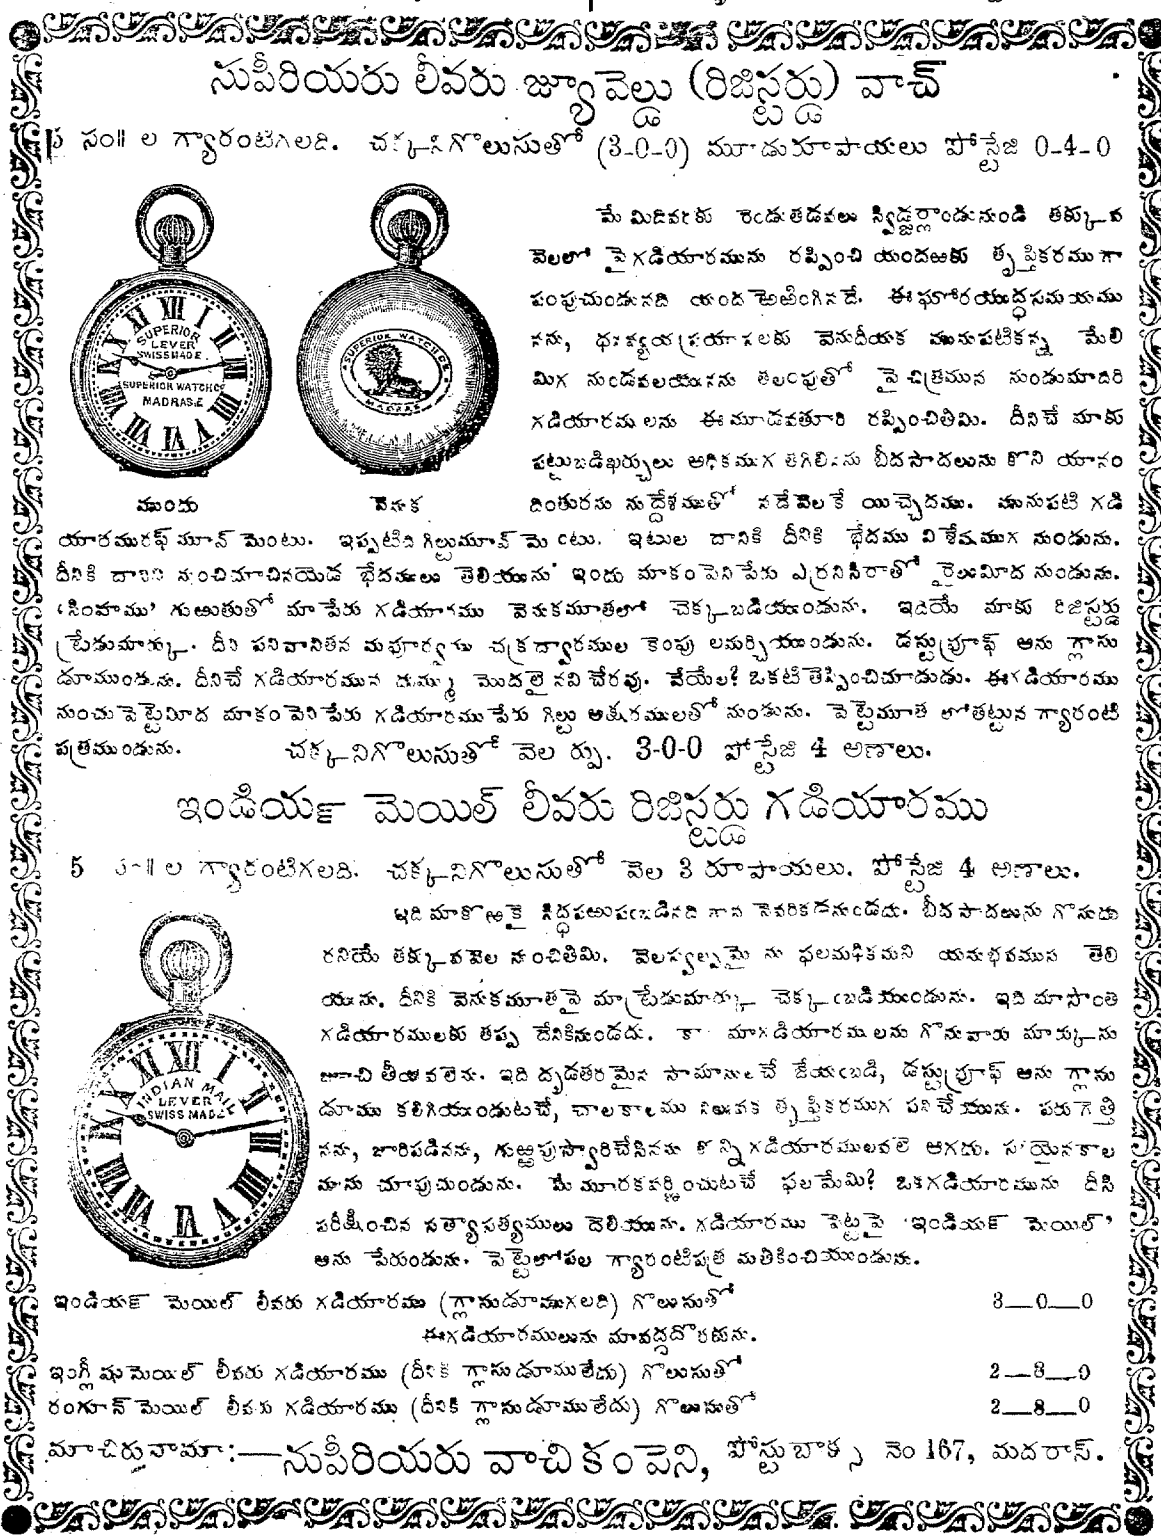 సుపీరియరు లీవరు జ్యూవెల్డు (రిజిస్టర్డు) వాచ్
5 సం॥ ల గ్యారంటిగలది. చక్కనిగొలుసుతో (3-0-0) మూడురూపాయలు పోస్టేజి 0-4-0
XII I II III V VI VII X XI
SUPERIOR
LEVER
SWISS MADE.
SUPERIOR WATCH CO
MADRAS.E
SUPERIOR WATCH CO.
MADRAS
ముందు
వెనుక
మే మిదివరకు రెండుతడవలు స్విడ్జర్లాండునుండి తక్కువ
వెలలో పైగడియారమును రప్పించి యందఱకు తృప్తికరముగా
పంపుచుండునది యంద ఱెఱింగినదే. ఈ ఘోరయుద్ధసమయము
నను, వెనుదీయక మునుపటికన్న మేలి
మిగ నుండవలయునను తలంపుతో పై చిత్రమున నుండుమాదిరి
గడియారములను ఈ మూడవతూరి రప్పించితిమి. దీనిచే మాకు
పట్టుబడిఖర్చులు అధికముగ తగిలినను బీదసాదలును కొని యానం
దింతురను నుద్దేశముతో నడేవెలకే యిచ్చెదము. మునుపటి గడి
యారమురఫ్ మూవ్ మెంటు. ఇప్పటిది గిల్టుమూవ్ మెంటు. ఇటుల దానికి దీనికి భేదము విశేషముగ నుండును.
దీనికి దానిని నుంచిచూచినయెడ భేదములు తెలియును. ఇందు మాకంపెనిపేరు ఎర్రనిసిరాతో రైలుమీద నుండును.
‘సింహము’ గుఱుతుతో మాపేరు గడియారము వెనుకమూతలో చెక్కబడియుండును. ఇదియే మాకు రిజిస్టర్డు
ట్రేడుమార్కు. దీని పనివానితన మపూర్వము చక్రద్వారముల కెంపు లమర్చియుండును. డస్టుప్రూఫ్ అను గ్లాసు
డూముండును. దీనిచే గడియారమున దుమ్ము మొదలైనవి చేరవు. వేయేల? ఒకటి తెప్పించిచూడుడు. ఈగడియారము
నుంచు పెట్టెమీద మాకంపెనిపేరు గడియారము పేరు గిల్టు అక్షరములతో నుండును. పెట్టెమూత లోతట్టున గ్యారంటీ
పత్రముండును. చక్కనిగొలుసుతో వెల రు. 3-0-0 పోస్టేజి 4 అణాలు.
ఇండియన్ మెయిల్ లీవరు రిజిస్టర్డు గడియారము
5 సం॥ ల గ్యారంటిగలది. చక్కనిగొలుసుతో వెల 3 రూపాయలు. పోస్టేజి 4 అణాలు.
XI XII I II III V VI VII X
INDIAN MAIL
LEVER
SWISS MADE
ఇది మాకొఱకై సిద్ధపఱుపఁబడినది గాన నెవరికడనుండదు. బీదసాదలును గొనుదు
రనియే తక్కువవెల నుంచితిమి. వెలస్వల్పమైనను ఫలమధికమని యనుభవమున తెలి
యును. దీనికి వెనుకమూతపై మాట్రేడుమార్కు చెక్కఁబడియుండును. ఇది మాసొంత
గడియారములకు తప్ప దేనికినుండదు. కాన మాగడియారములను గొనువారు మార్కును
జూచి తీయవలెను. ఇది దృఢతరమైన సామానులచే జేయఁబడి, డస్టుప్రూఫ్ అను గ్లాసు
డూము కలిగియుండుటచే, చాలకాలము నిలువక తృప్తికరముగ పనిచేయును. పరుగెత్తి
నను, జారిపడినను, గుఱ్ఱపుస్వారిచేసినను కొన్నిగడియారములవలె ఆగదు. సరియైనకాల
మును చూపుచుండును. మే మూరకవర్ణించుటచే ఫలమేమి? ఒకగడియారమును దీసి
పరీక్షించిన సత్యాసత్యములు దెలియును. గడియారము పెట్టెపై ‘ఇండియన్ మెయిల్’
అను పేరుండును. పెట్టెలోపల గ్యారంటిపత్ర మతికించియుండును.
ఇండియన్ మెయిల్ లీవరు గడియారము (గ్లాసుడూముగలది) గొలుసుతో 3—0—0
ఈగడియారములును మావద్దదొరకును.
ఇంగ్లీషుమెయిల్ లీవరు గడియారము (దీనికి గ్లాసుడూములేదు) గొలుసుతో 2—8—0
రంగూన్ మెయిల్ లీవరు గడియారము (దీనికి గ్లాసుడూములేదు) గొలుసుతో 2—8—0
మాచిరునామా:—సుపీరియరు వాచికంపెని, పోస్టుబాక్సు నెం 167, మదరాస్.